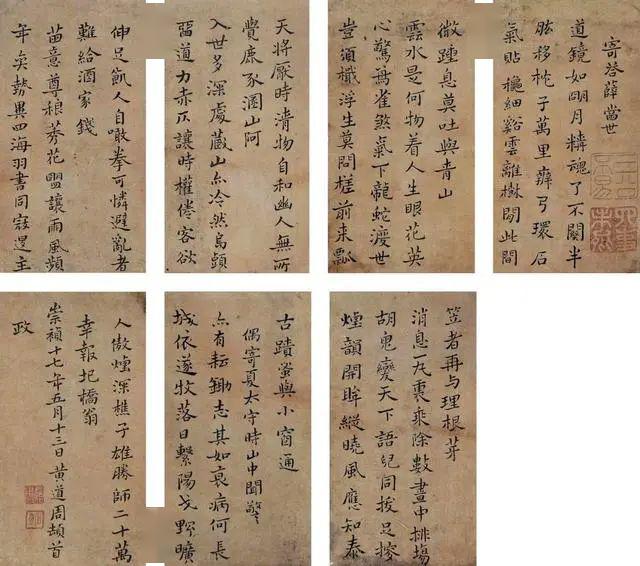 寄答薛當世
道鏡如明月精魂了不關半
肱移枕子萬里薜弓環石
氣貼穐細谿雲離樹閒此間
微踵息莫吐與青山
雲水是何物着人生眼花英
心驚燕雀煞氣下龍蛇渡世
豈須檝浮生莫問槎前来瓢
笠者再与理根芽
消息一九裏乘除數晝中排場
胡鬼變天下語紀同援足
煙韻開眸縱曉風應知泰
古蹟蛩與小窗通
偶寄夏太守時山中聞警
亦有耘鋤志其如衰病何長
城依遂牧落日繫陽戈野曠
天將厭時清物自和幽人無所
覺鹿豕溷山阿
入世多深處蔵山亦冷然烏頭
罶道力赤仄讓時權倦客欲
伸足飢人自噉拳可憐避亂者
難給酒家錢
苗意尊稂莠花盟讓雨風頻
年矣勢異四海羽書同寇逞主
人傲煙深樵子雄勝師二十萬
幸報圯橋翁
崇禎十七年五月十三日黄道周頓首
政